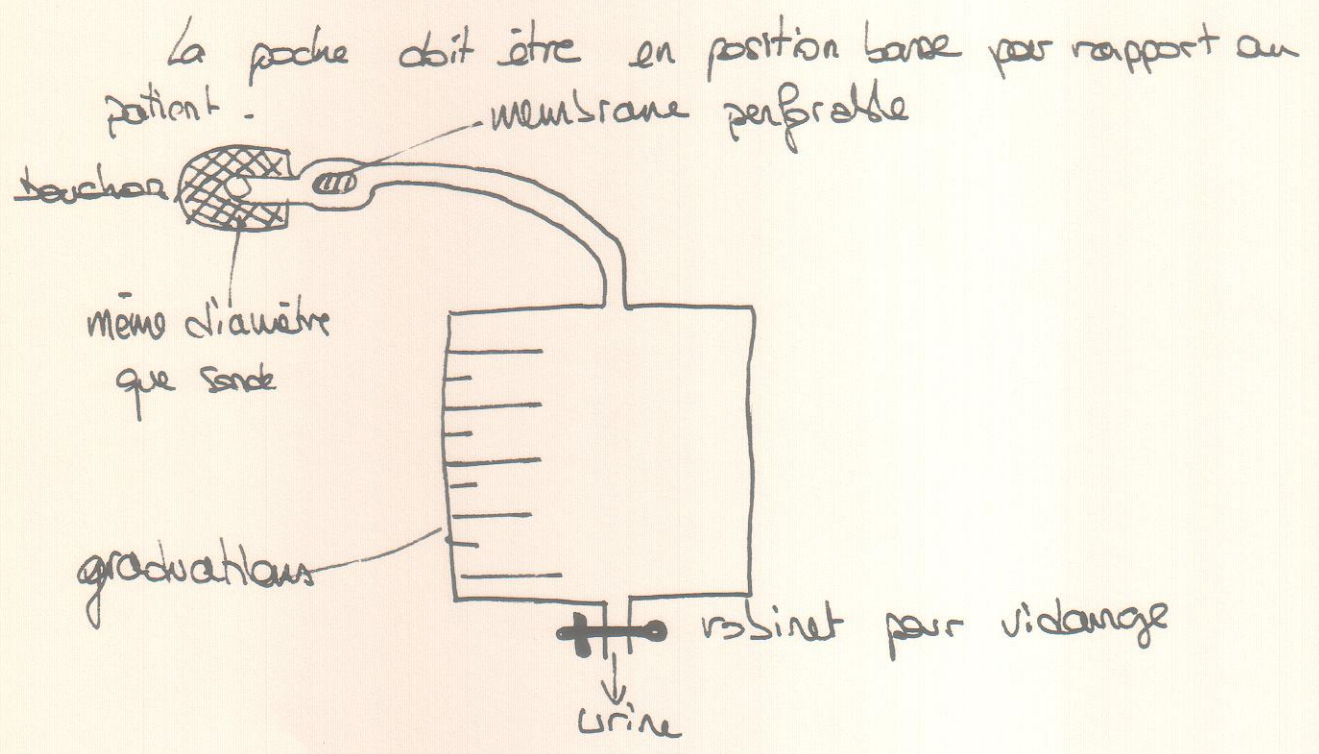 La poche doit être en position basse par rapport au
patient.
membrane perforable
bouchon
même diamètre
que sonde
graduations
robinet pour vidange
urine